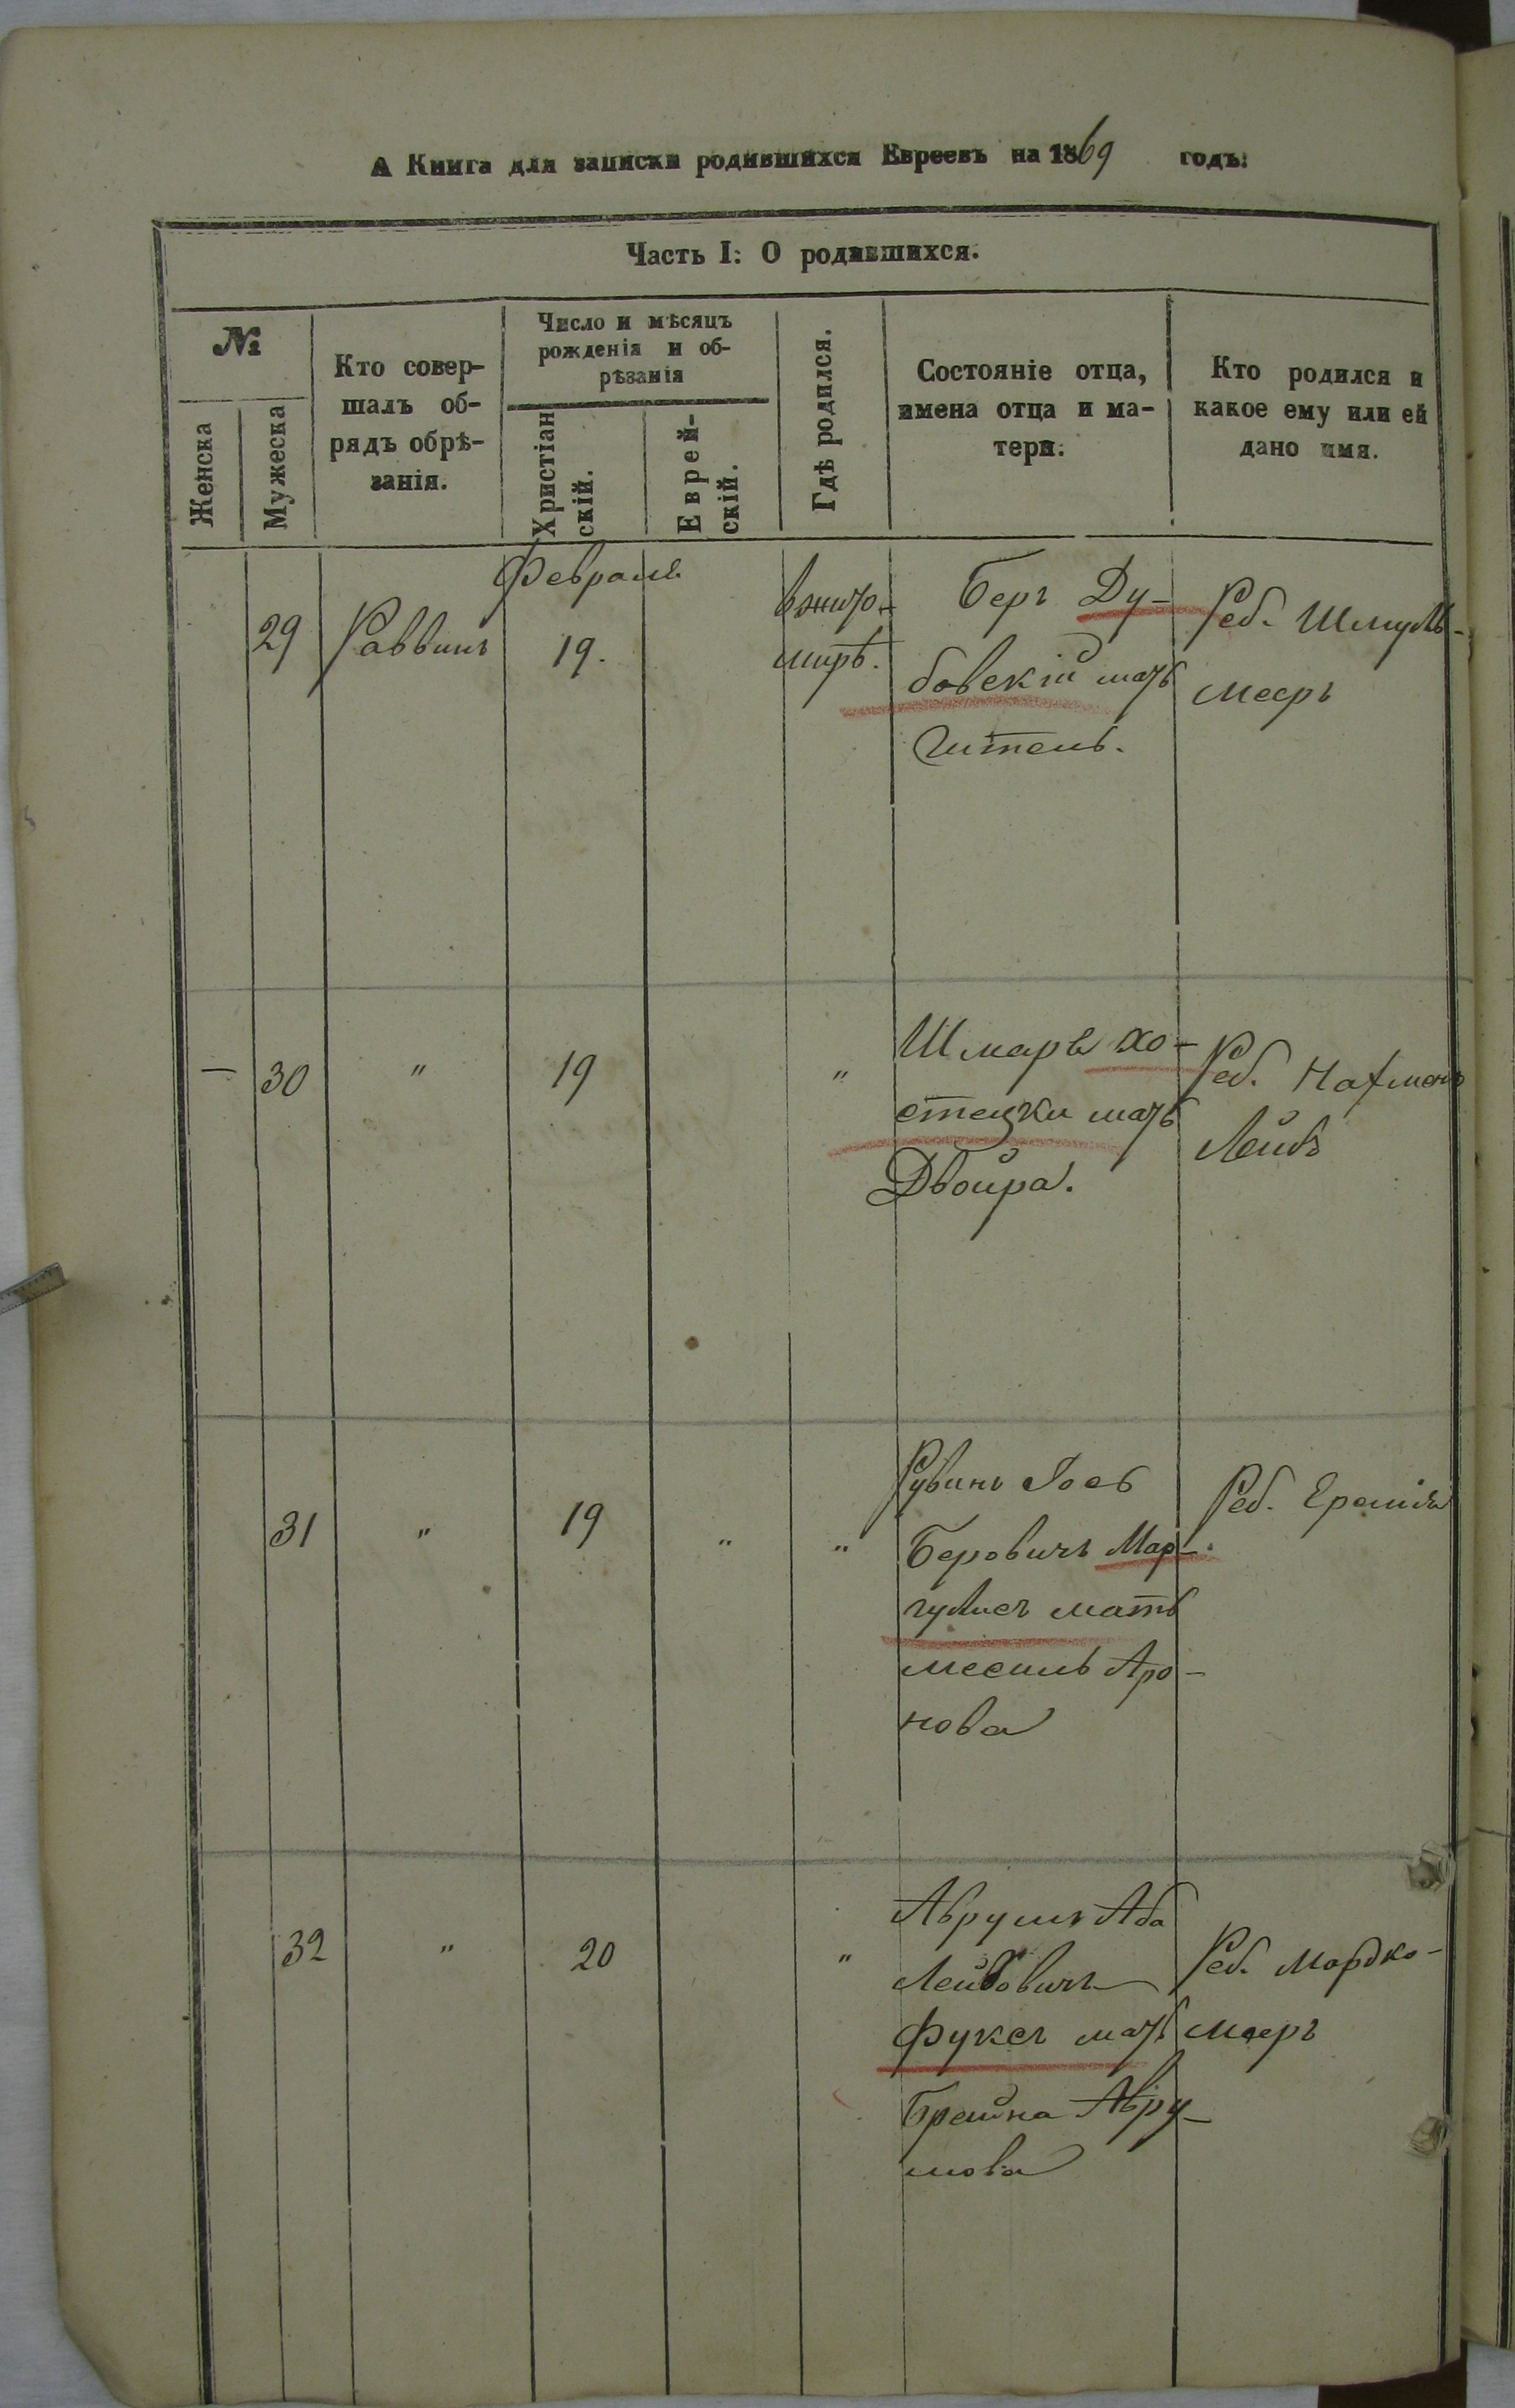 А Книга для записки родившихся Евреевъ на 1869 годъ:
Часть I: О родившихся.
№
Женска
Мужеска
Кто совер-
шалъ об-
рядъ обрѣ-
занія.
Число и мѣсяцъ
рожденія и об-
рѣзанія
Христіан
скій.
Еврей-
скій.
Гдѣ родился.
Состояніе отца,
имена отца и ма-
тери.
Кто родился и
какое ему или ей
дано имя.
Февраля
29
Раввинъ
19.
в жито-
мирѣ.
Беръ Ду-
бовскій мать
Гитель.
Реб. Шмуль-
Мееръ
—
30
"
19
"
Шмарь Хо-
стецки мать
Двойра.
Реб. Нахмонъ
Лейбъ
31
"
19
"
"
Рувинъ Іось
Беровичъ Мар-
гулисъ мать
Аро-
нова
Реб. Еремія
32
"
20
"
Аврумъ Аба
Лейбовичъ
Фуксъ мать
Брейна Авру-
мова
Реб. Мордко-
Мееръ